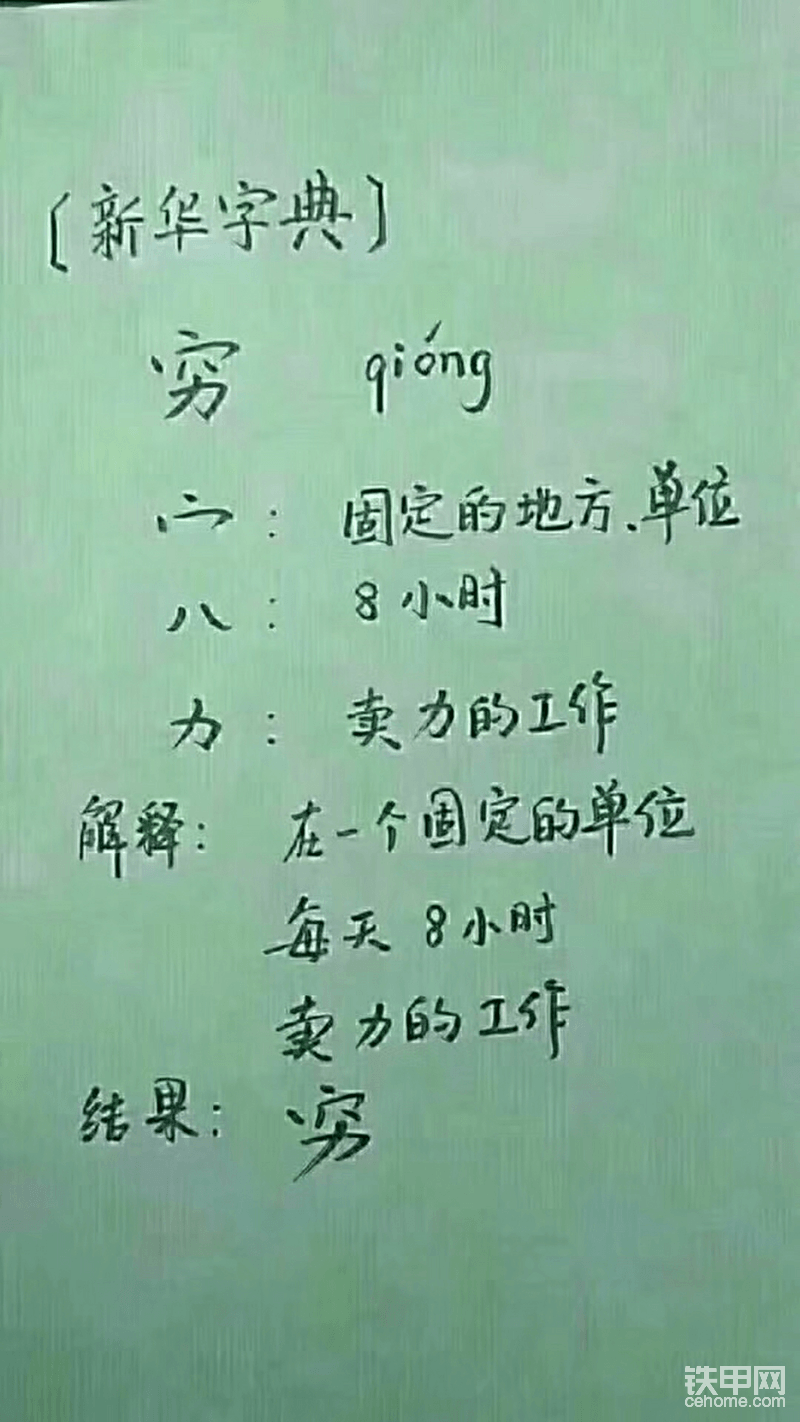 [新华字典]
穷 qióng
宀: 固定的地方、单位
八: 8小时
力: 卖力的工作
解释: 在一个固定的单位
每天8小时
卖力的工作
结果: 穷
铁甲网
cehome.com